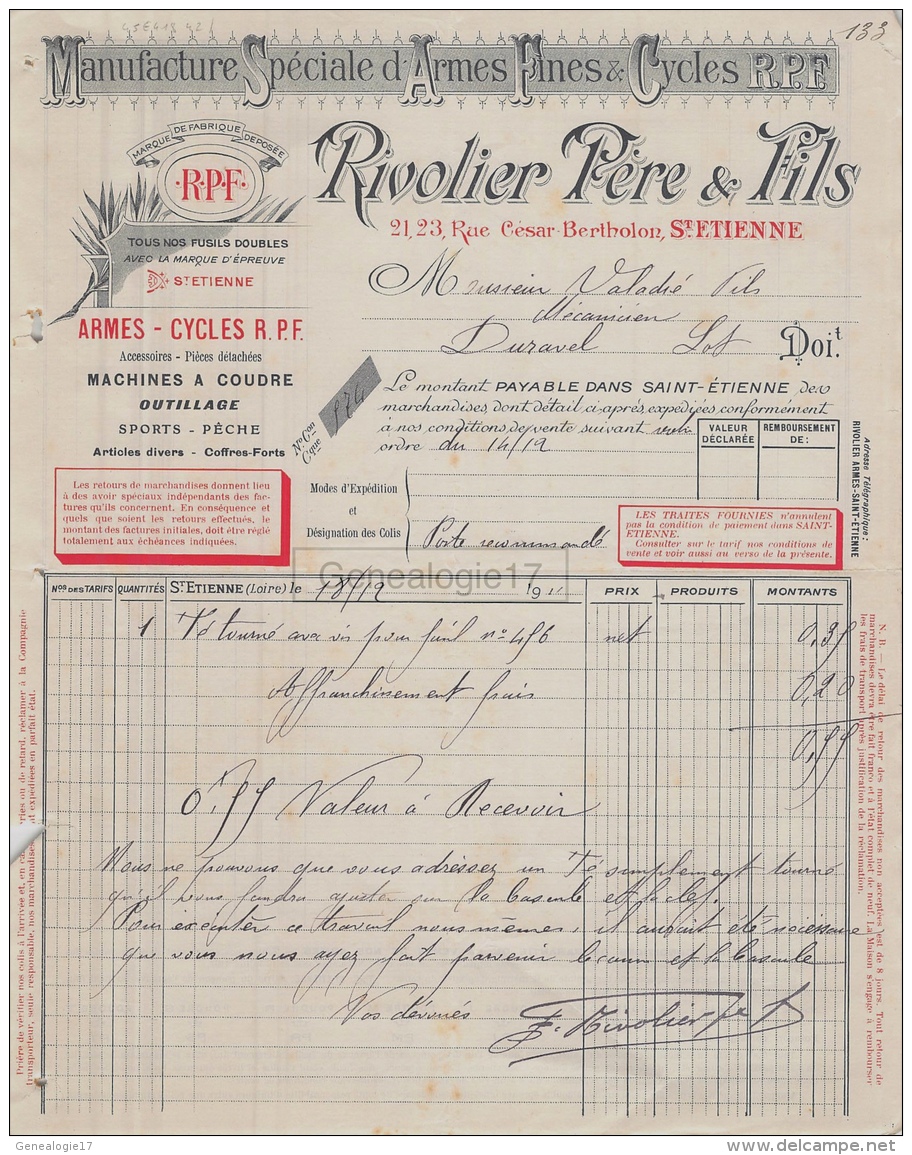 133
Manufacture Spéciale d'Armes Fines & Cycles R.P.F.
MARQUE DE FABRIQUE DEPOSÉE
·R·P·F·
Rivolier Père & Fils
21, 23, Rue César-Bertholon, ST ETIENNE
TOUS NOS FUSILS DOUBLES
AVEC LA MARQUE D'ÉPREUVE
ST ETIENNE
Monsieur Valadié Fils
Mécanicien
Duravel Lot Doit.
ARMES - CYCLES R.P.F.
Accessoires - Pièces détachées
MACHINES A COUDRE
OUTILLAGE
SPORTS - PÊCHE
Articles divers - Coffres-Forts
No Con
Cque 174
Le montant PAYABLE DANS SAINT-ÉTIENNE des
marchandises, dont détail ci-après, expédiées conformément
à nos conditions de vente suivant votre
ordre du 14/12
VALEUR DÉCLARÉE
REMBOURSEMENT DE:
Adresse Télégraphique:
RIVOLIER ARMES-SAINT-ETIENNE
Les retours de marchandises donnent lieu
à des avoir spéciaux indépendants des fac-
tures qu'ils concernent. En conséquence et
quels que soient les retours effectués, le
montant des factures initiales, doit être réglé
totalement aux échéances indiquées.
Modes d'Expédition
et
Désignation des Colis
Poste recommandé
LES TRAITES FOURNIES n'annulent
pas la condition de paiement dans SAINT-
ETIENNE.
Consulter sur le tarif nos conditions de
vente et voir aussi au verso de la présente.
Genealogie17
Nos DES TARIFS QUANTITÉS ST ETIENNE (Loire) le 18/12 19 PRIX PRODUITS MONTANTS
1 Té tourné avec vis pour fusil no 456 net 0,35
Affranchissement frais 0,20
0,55
0f,55 Valeur à Recevoir
Nous ne pouvons que vous adresser un Té simplement tourné
qu'il vous faudra ajuster sur la bascule et la clef.
Pour exécuter ce travail nous mêmes, il aurait été nécéssaire
que vous nous ayez fait parvenir le canon et la bascule
Vos dévoués
F. Rivolier
Prière de vérifier nos colis à l'arrivée et, en cas ries ou de retard, réclamer à la Compagnie
transporteur, seule responsable, nos marchandises nt expédiées en parfait état.
N. B. — Le délai de retour des marchandises non acceptées est de 8 jours. Tout retour de
marchandises devra être fait franco et à l'état complet de neuf. La Maison s'engage à rembourser
les frais de transport après justification de la réclamation.
Genealogie17
www.delcampe.net